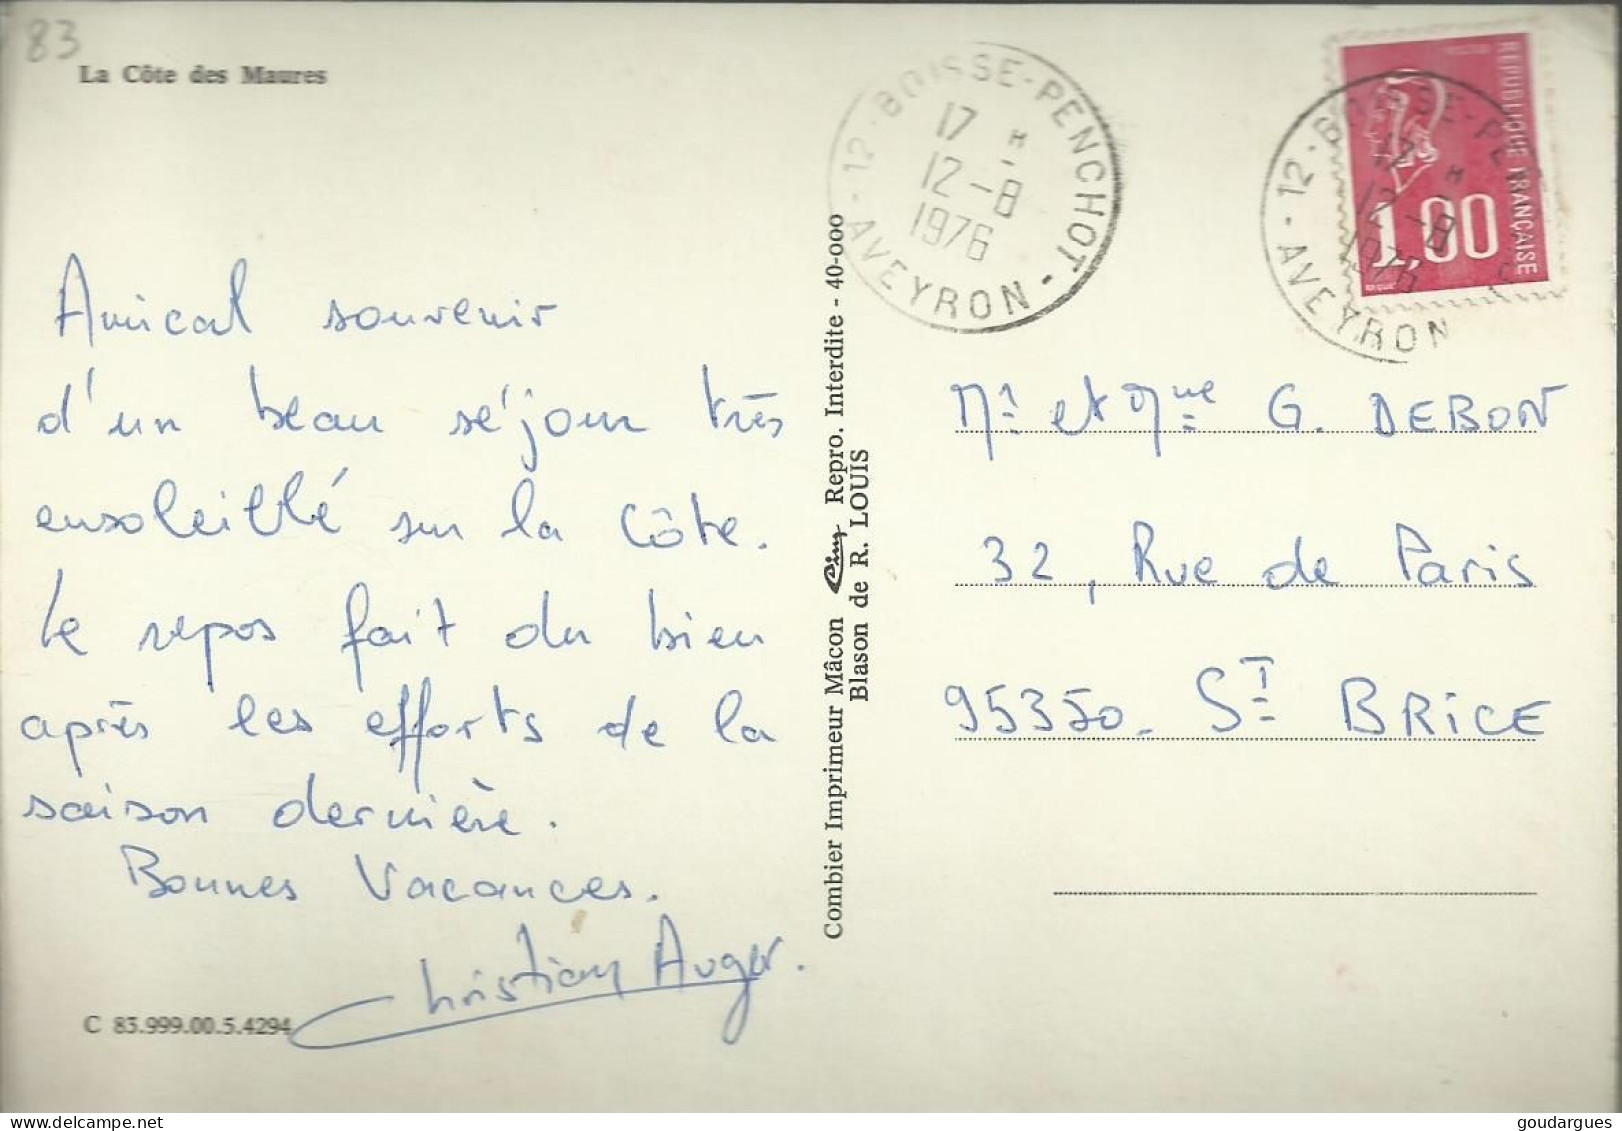 83
La Côte des Maures
Amical souvenir
d'un beau séjour très
ensoleillé sur la Côte.
Le repos fait du bien
après les efforts de la
saison dernière.
Bonnes Vacances.
Christian Auger.
C 83.999.00.5.4294
Combier Imprimeur Mâcon Cim Repro. Interdite - 40-000
Blason de R. LOUIS
12 - BOISSE-PENCHOT - AVEYRON -
17 H
12 - 8
1976
REPUBLIQUE FRANÇAISE
1,00
12 - BOISSE-PE
17 H
12 - 8
1976
AVEYRON
Mr et Mme G. DEBON
32, Rue de Paris
95350 - ST BRICE
goudargues @ delcampe.net